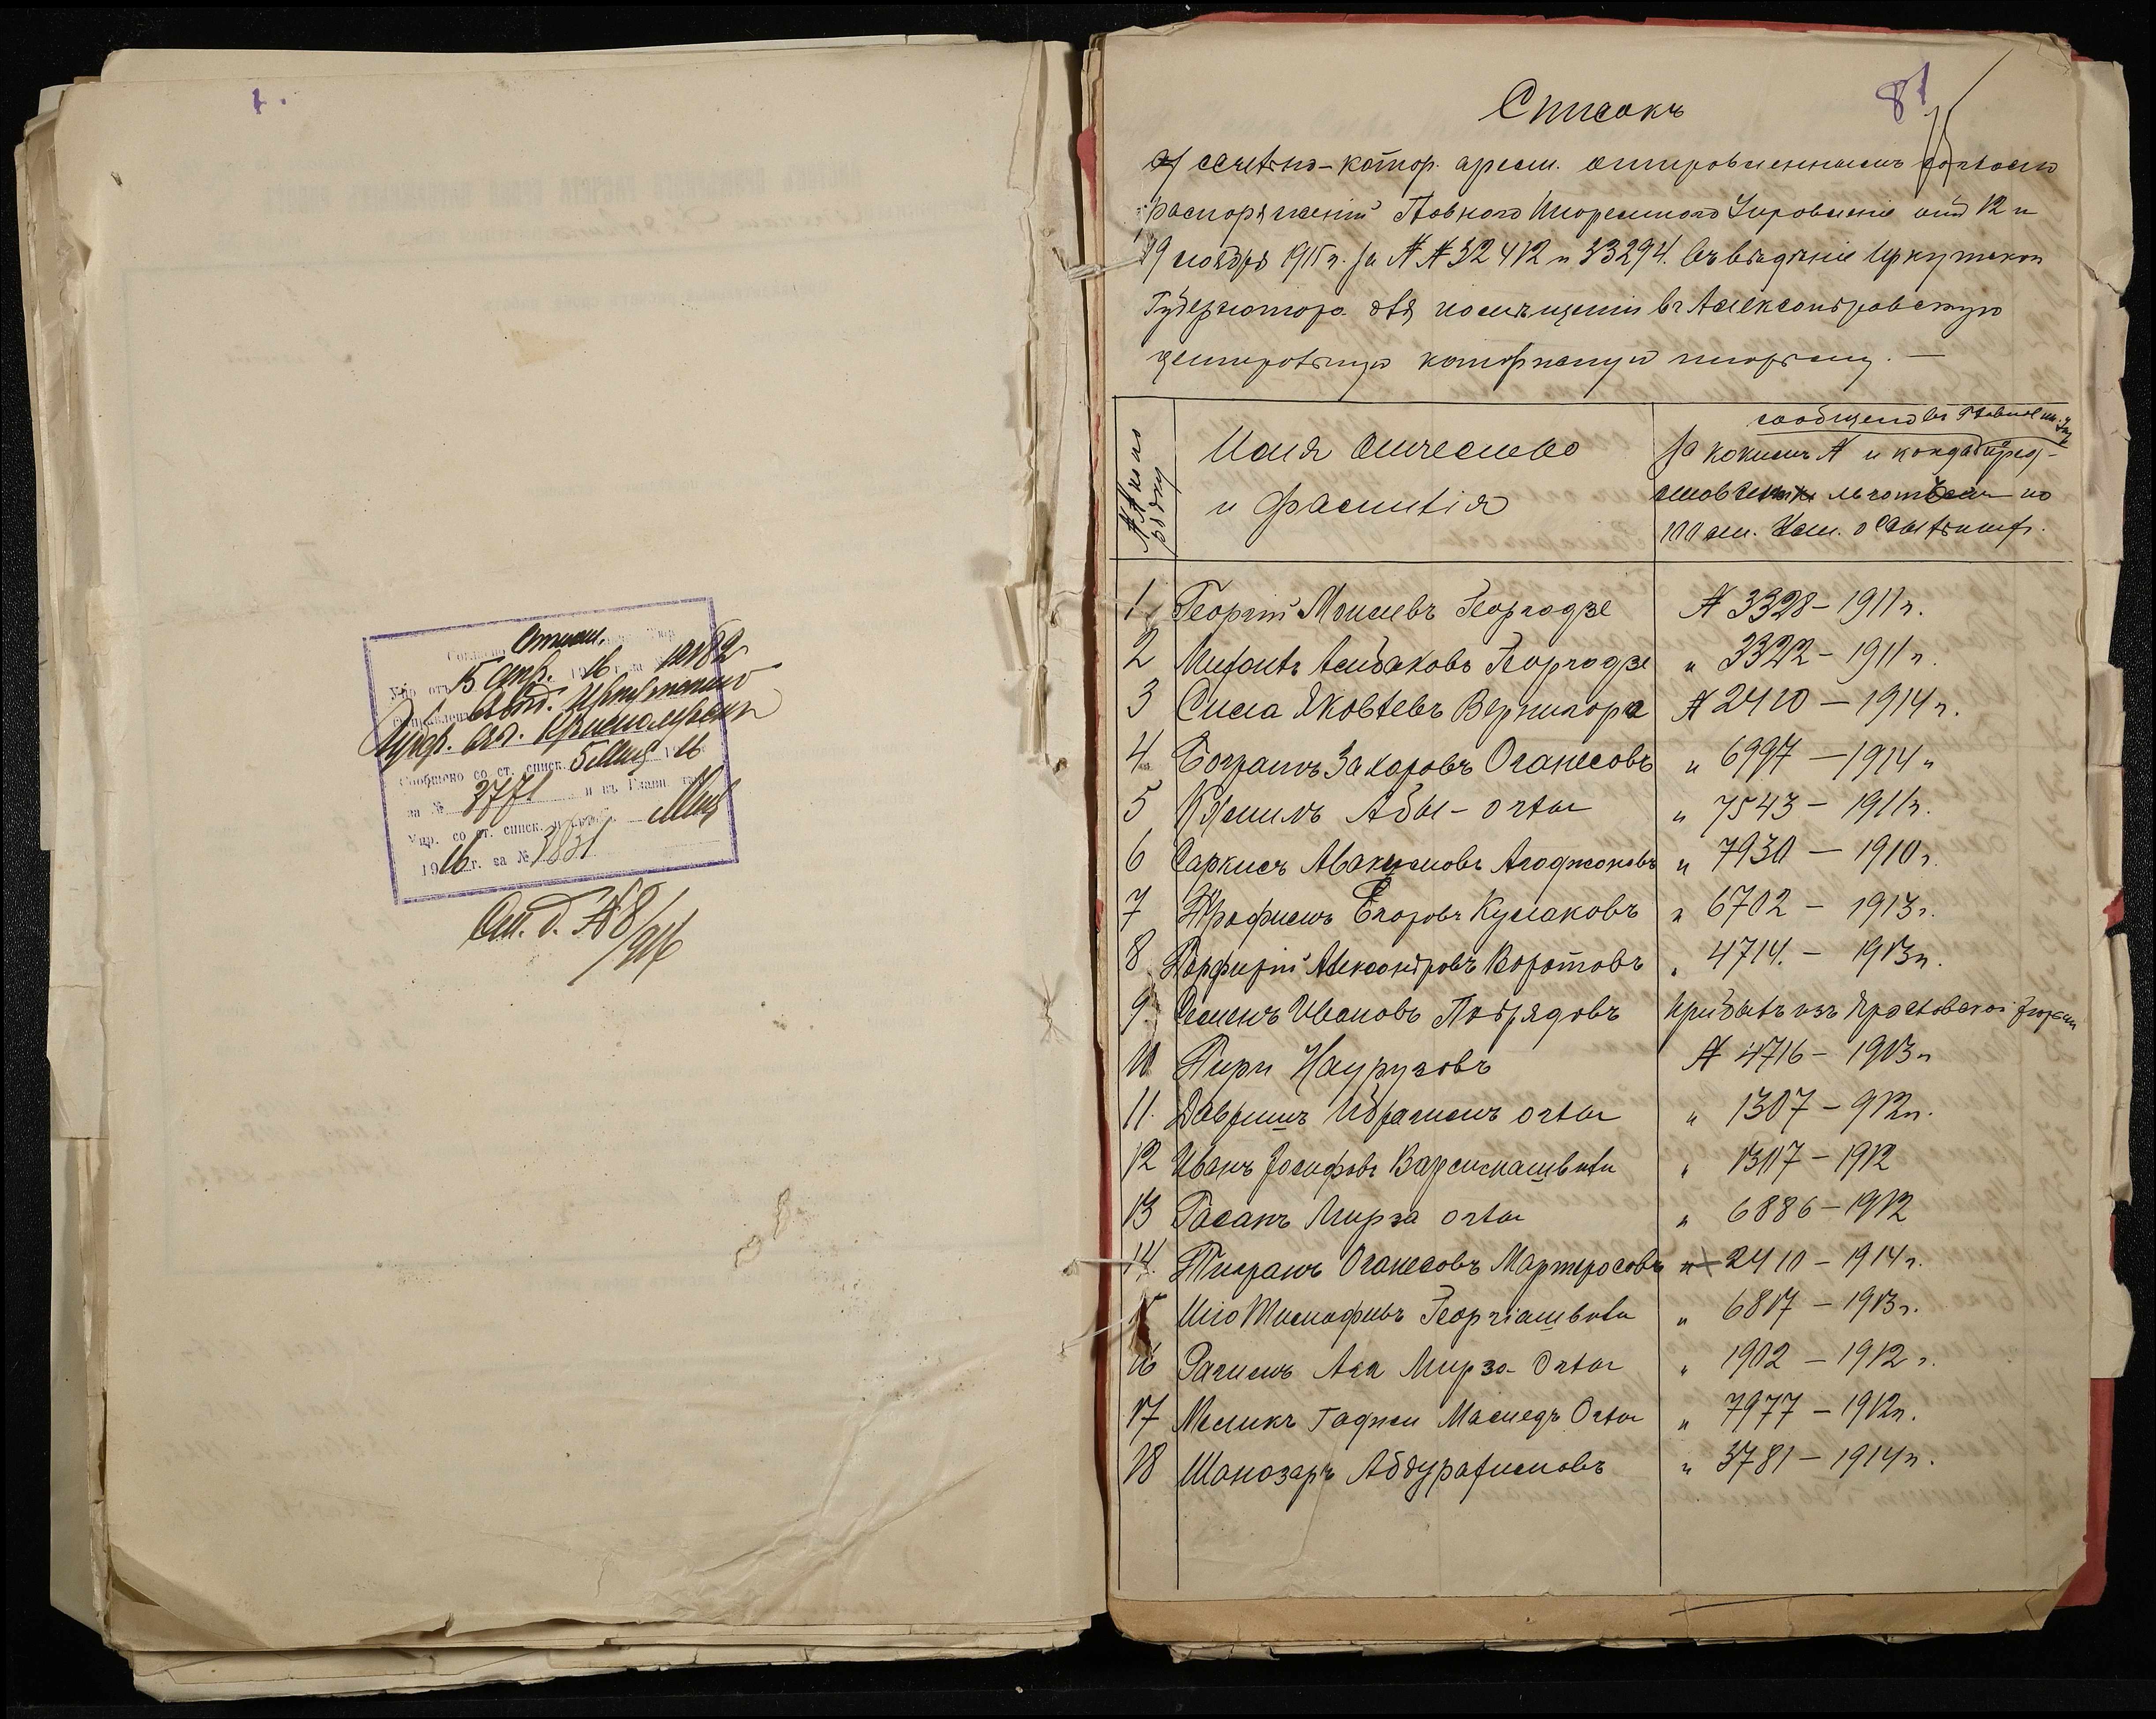 1.
Согласно Отнош.
Упр. отъ 15 Апр. 1916 г. за № 12182
отправленъ въ вѣд. Иркутскаго
Губ. ст.
Сообщено со ст. списк. 5 Мая 16
за № 3771 и въ Главн. тюр.
Упр. со ст. списк. Мая
1916 г. за № 3831
См. д. № 8/916
81
Списокъ
ссыльно-катор. арест. отправленнымъ согласно
распоряженій Главного Тюремного Управленія отъ 12 и
19 ноября 1915 г. за №№ 32412 и 33294. въ вѣдѣніе Иркутскаго
Губернатора для помѣщенія въ Александровскую
центральную каторжную тюрьму. —
№№ по порядку
Имя Отчество
и Фамилія
сообщено въ Главное тюр. Упр.
За какимъ № и когда пред-
по
100 см. Уст. о ссыльныхъ.
1 Георгій Моисеевъ Георгадзе № 3328 – 1911 г.
2 Георгадзе „ 3322 – 1911 г.
3 Сила Яковлевъ Вернигора № 2410 – 1914 г.
4 Баграмъ Захаровъ Оганесовъ „ 6997 – 1914 „
5 Абы-оглы „ 7543 – 1911 г.
6 Саркисъ Авакумовъ Агаджановъ „ 7930 – 1910 г.
7 Трофимъ Егоровъ Кулаковъ „ 6702 – 1913 г.
8 Порфирій Александровъ Воротовъ „ 4714. – 1913 г.
9 Семенъ Ивановъ Подрядовъ Прибылъ изъ Ярославской тюрьмы
10 Пири Наурузовъ № 4716 – 1913 г.
11. Давришъ Ибрагимъ оглы „ 1307 – 912 г.
12 Иванъ Іосифовъ Варсимашвили „ 1317 – 1912
13 Гасанъ Мирза оглы „ 6886 – 1912
14. Тигранъ Оганесовъ Мартиросовъ „ 2410 – 1914 г.
15 Георгіашвили „ 6817 – 1913 г.
16 Рагимъ Ага Мирза Оглы „ 1902 – 1912 г.
17 Меликъ Гаджи Мамедъ Оглы „ 7977 – 1912 г.
18 Шаназаръ Абдурагимовъ „ 3781 – 1914 г.